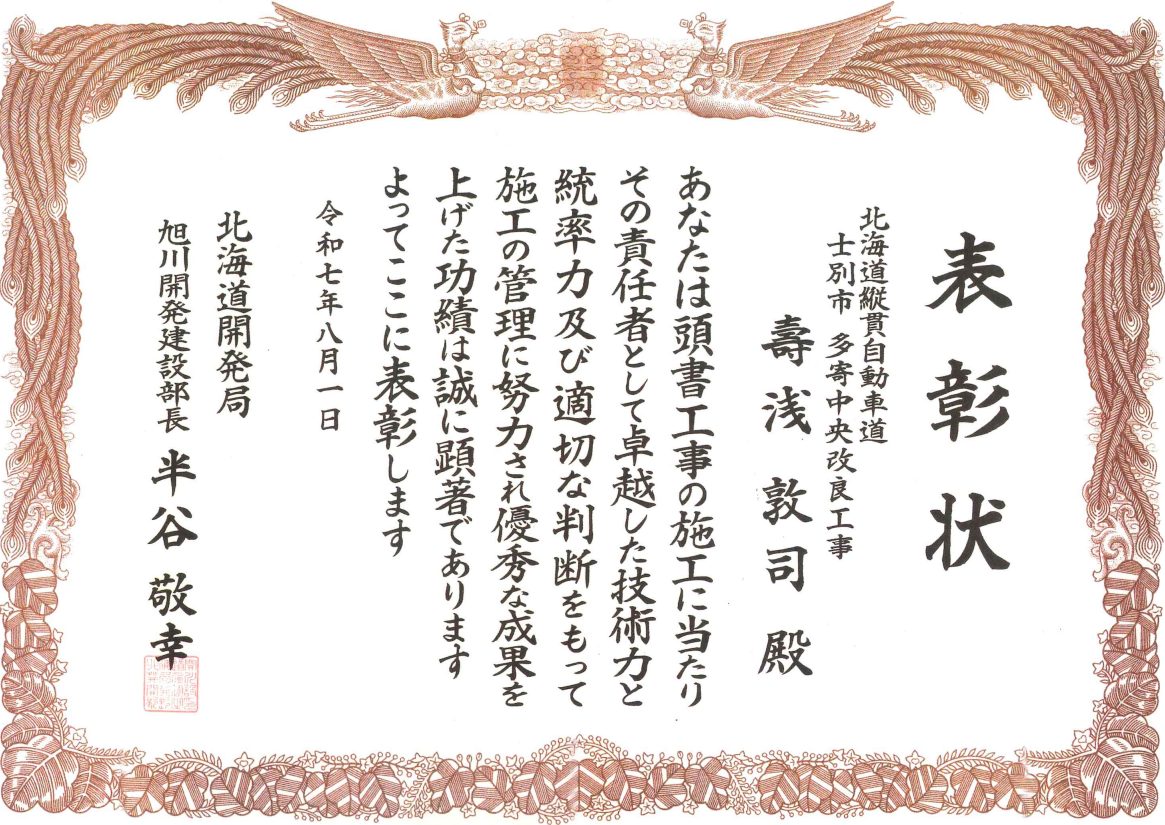 表彰状
北海道縦貫自動車道
士別市 多寄中央改良工事
壽浅敦司殿
あなたは頭書工事の施工に当たり
その責任者として卓越した技術力と
統率力及び適切な判断をもって
施工の管理に努力され優秀な成果を
上げた功績は誠に顕著であります
よってここに表彰します
令和七年八月一日
北海道開発局
旭川開発建設部長 半谷敬幸